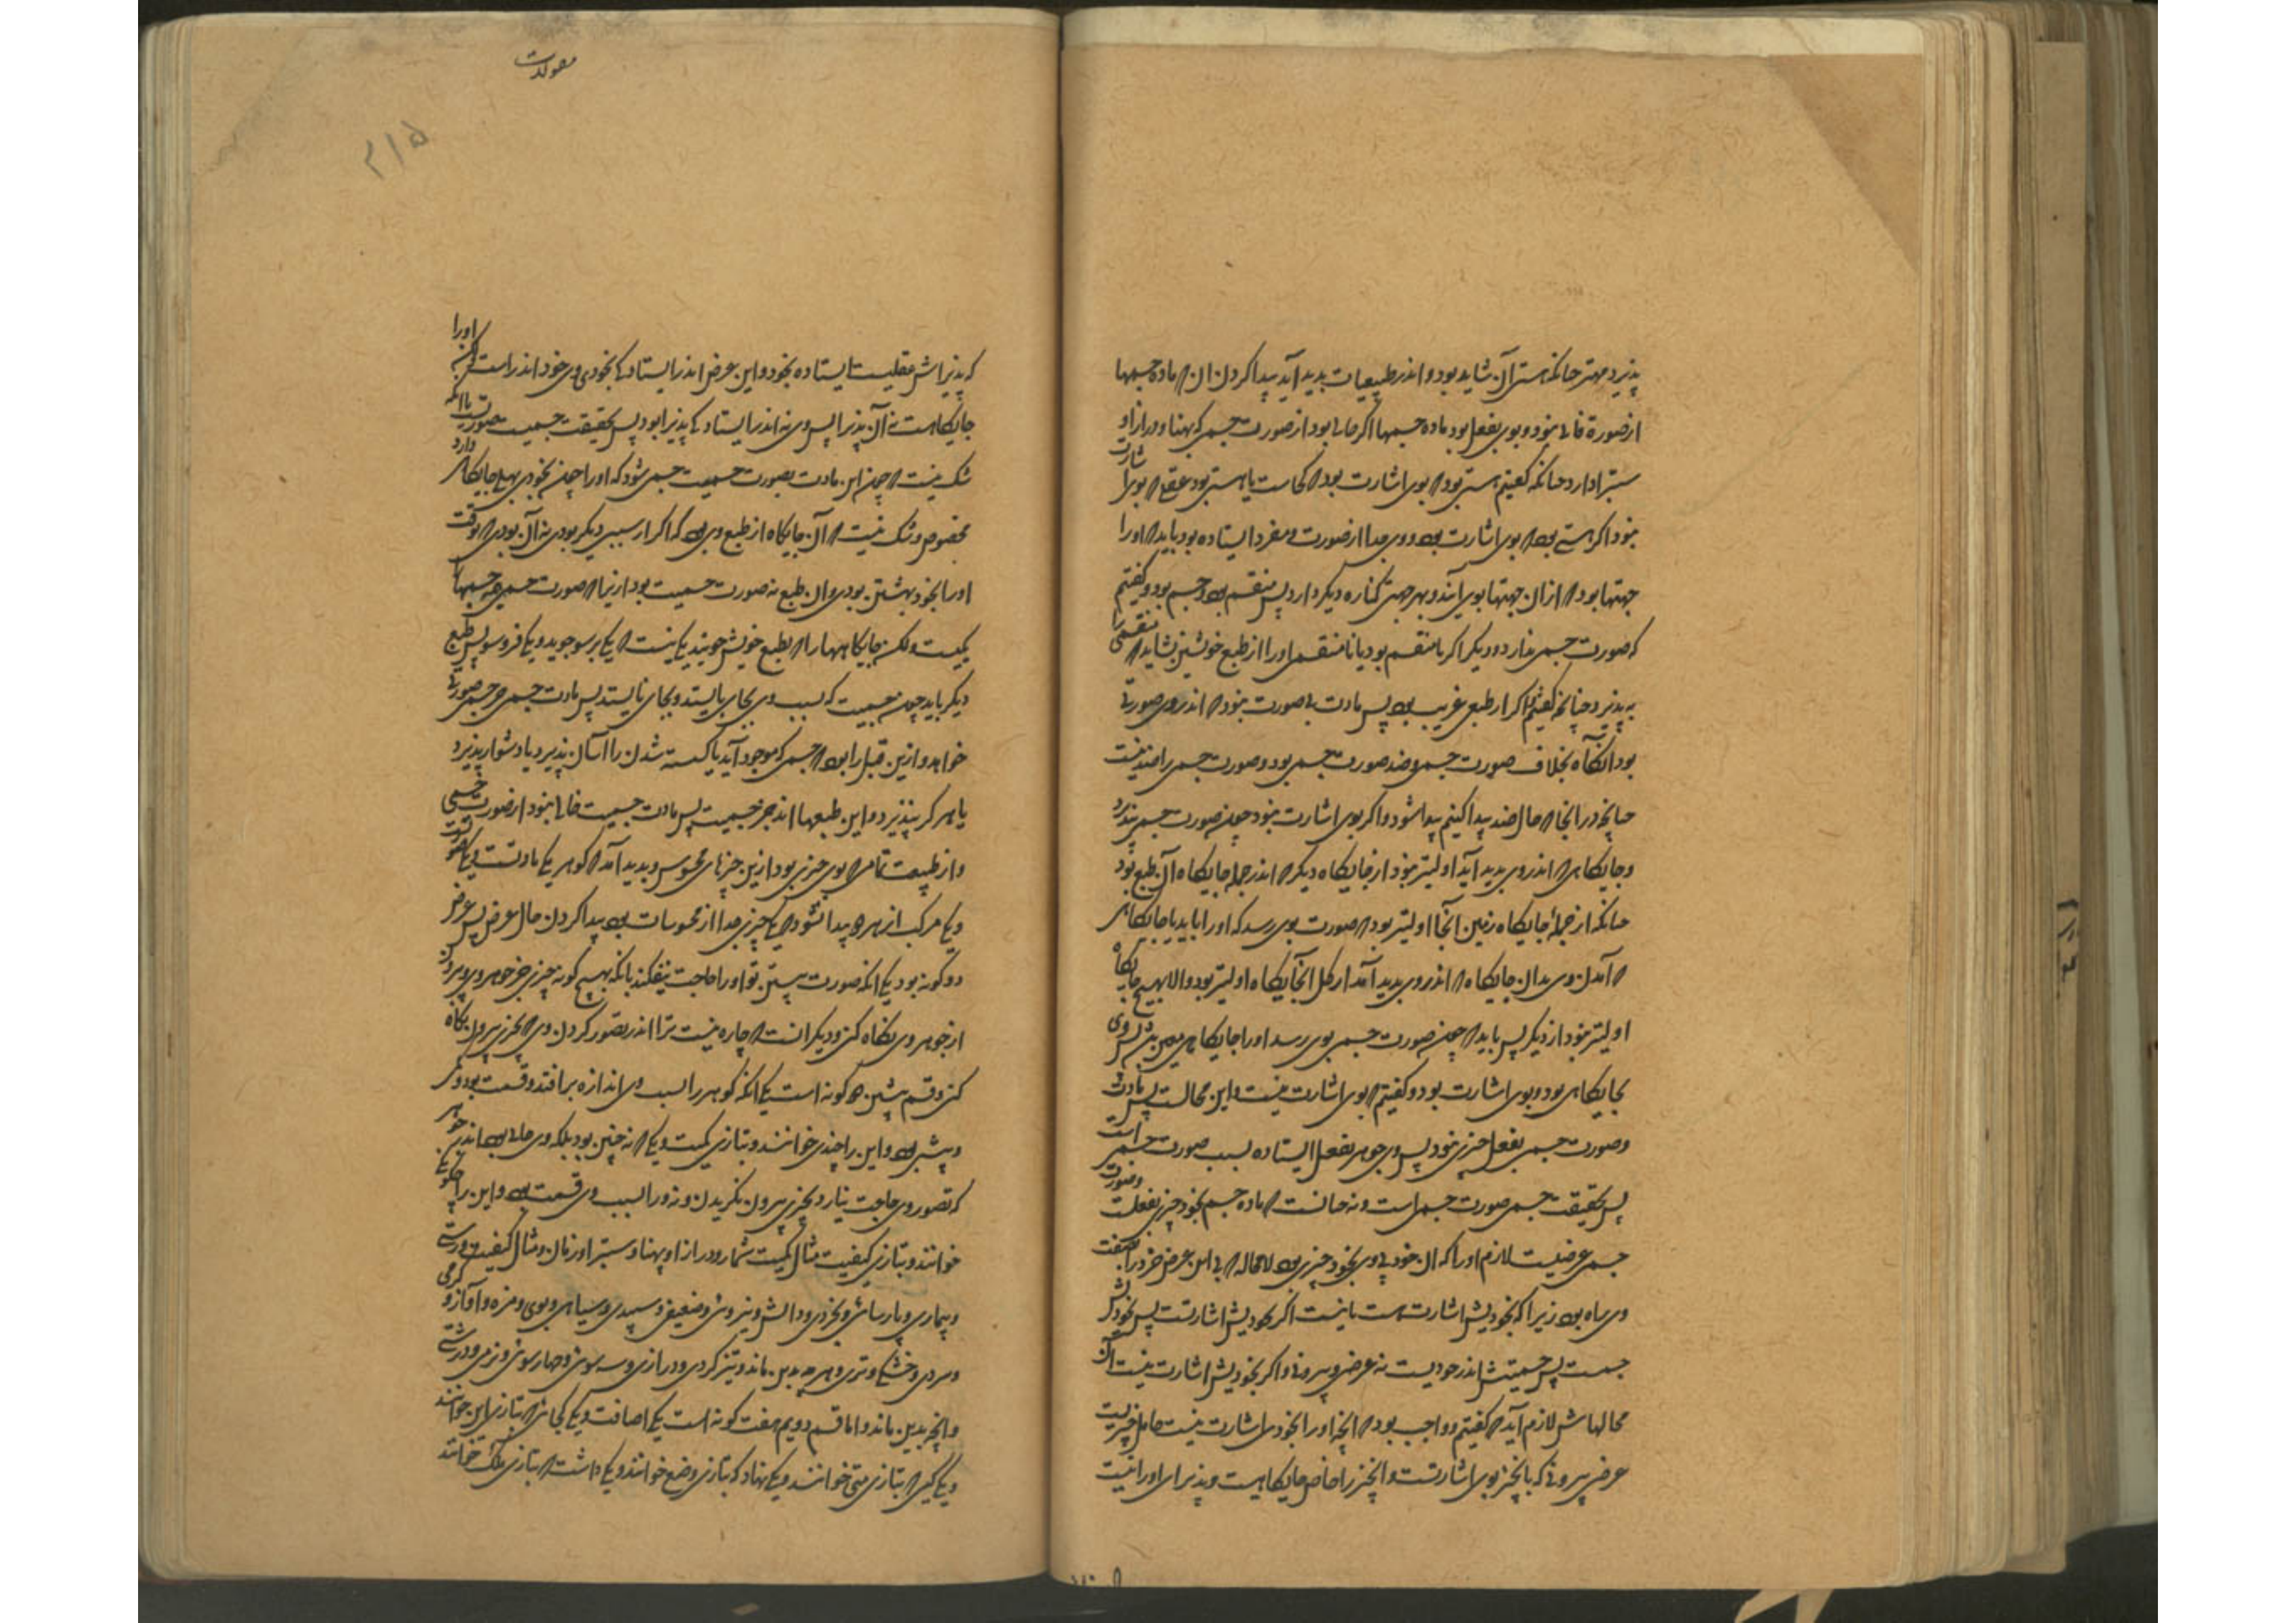 پذیرد مهتر چنانکه هستی آن شاید بود و اندر طبیعیات پدید آید پیدا کردن آن که ماده جسمها
از صورة خالی نبود و بوی بفعل بود ماده جسمها اگر خالی بود از صورت جسمی که پهنا و درازا و
ستبرا دارد چنانکه گفتیم هستی بود که بوی اشارت بود که کجاست یا هستی بود عقلی که بوی اشارت
نبود اگر هستی بود که بوی اشارت بود و وی جدا از صورت و مفرد ایستاده بود باید که او را
جهتها بود که از آن جهتها بوی آیند و بهر جهتی کناره دیگر دارد پس منقسم بود و جسم بود و گفتیم
که صورت جسمی ندارد و دیگر اگر نامنقسم بود یا نامنقسمی او را از طبع خویش نشاید که منقسمی را
به پذیرد چنانچه گفتیم اگر از طبع غریب بود پس مادت بی صورت نبود که اندر وی صورتی
بود آنگاه بخلاف صورت جسمی و ضد صورت جسمی بود و صورت جسمی را ضد نیست
چنانچه در انجا که حال ضد پیدا کنیم پیدا شود و اگر بوی اشارت نبود چون صورت جسمی پذیرد
و جایگاهی که اندر وی پدید آید اولیتر نبود از جایگاه دیگر که اندر جمله جایگاه آن طبع بود
چنانکه از جمله جایگاه زمین آنجا اولیتر بود که صورت بوی رسد که او را یابد یا جایگاهی
که آمدن وی بدان جایگاه که اندر وی پدید آمد از کل آن جایگاه اولیتر بود و الا بهیچ جایگاه
اولیتر نبود از دیگر پس باید که چون صورت جسمی بوی رسد او را جایگاهی معین بود پس وی
بجایگاهی بود و بوی اشارت بود و گفتیم که بوی اشارت نیست و این محالست پس مادت
و صورت جسمی بفعل چیزی نبود پس وی جوهر بفعل ایستاده بسبب صورت جسمی است
پس بحقیقت جسمی صورت جسمی است و نه چنانست که ماده جسم بخود چیزی بفعلست و صورت
جسمی عرضیست لازم او را که آن خود بی وی بخود چیزی بود لامحاله که بی این عرض خرد را بصفت
وی راه بود زیرا که بخودیش اشارت هست یا نیست اگر بخودیش اشارتست پس بخودش
جسمست پس جسمیتش اندر خودیست نه عرض و بیرونی و اگر بخودیش اشارت نیست آن
محالهاش لازم آید که گفتیم و واجب بود که آنچه او را بخودی اشارت نیست حامل چیزیست
عرض بیرونی که بآنچیز بوی اشارتست و آنچیز را خاص جایگاهیست و پذیرای او را نیست
معولدت
۲۱۵
که پذیرایش عقلیست ایستاده بخود و این عرض اندر ایستاده بخودی وی خود اندر است که او را
جایگاهست نه آن پذیرا پس وی نه اندر ایستاده پذیرا بود پس بحقیقت جسمیت صورتیست با آنکه
شک نیست که چون این مادت بصورت جسمیت جسمی شود که او را چون بخودی بهلی جایگاهی دارد
مخصوص و شک نیست که آن جایگاه از طبع وی بود که اگر از سببی دیگر بودی نه آن بودی که بوقت
او را بخود بهشتن بودی و آن طبع نه صورت جسمیت بود ازیرا که صورت جسمی همه جسمها را
یکیست ولکن جایگاهها را که بطبع خویش جویند یکی نیست که یکی برسو جوید و یکی فروسو پس طبع
دیگر باید جون جسمیت که بسبب وی بجایی بایستد و بجای نایستد پس مادت جسمی جز جسمی صورتی
خواهد و ازین قبل را بود که جسمی که موجود آید یا گسسته شدن را آسان پذیرد یا دشوار پذیرد
یا هرگز نپذیرد و این طبعها اند جز جسمیت پس مادت جسمیت خالی نبود از صورت جسمی
و از طبیعت تمامی که بوی چیزی بود ازین چیزهای محسوس و پدید آمد که گوهر یکی مادتست و یکی صورت
و یکی مرکب از هر دو پیدا شود که یکی چیزی جدا از محسوسات بود پیدا کردن حال عرض پس عرض
دو گونه بود یکی آنکه صورت بستن تو او را حاجت نیفکند بآنکه بهیچ گونه چیزی جز جوهر وی و بیرون
از جوهر وی نگاه کنی و دیگر آنست که چاره نیست ترا اندر تصور کردن وی که بچیزی بیرون نگاه
کنی و قسم پیشین دو گونه است یکی آنکه گوهر را بسبب وی اندازه برافتد و قسمت بود و کمی
و بیشی بود و این را چندی خوانند و بتازی کمیت و یکی که نه چنین بود بلکه وی حالی بود اندر جوهر
که تصور وی حاجت نیارد بچیزی بیرون نگریدن و نه ورا بسبب وی قسمت بود و این را چگونگی
خوانند و بتازی کیفیت مثال کمیت شمار و درازا و پهنا و ستبرا و زمان و مثال کیفیت درستی
و بیماری و پارسائی و بخردی و دانش و نیروئی و ضعیفی و سپیدی و سیاهی و بوی و مزه و آواز و گرمی
و سردی و خشکی و تری و هرچه بدین ماند و نیز گردی و درازی و سه سوئی و چهارسوئی و نرمی و درشتی
و آنچه بدین ماند و اما قسم دویم هفت گونه است یکی اضافت و یکی کجائی که بتازی این خوانند
و یکی کیی که بتازی متی خوانند و یکی نهاد که بتازی وضع خوانند و یکی داشت که بتازی ملک خوانند